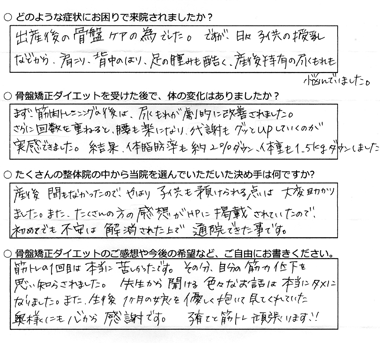 ○ どのような症状にお困りで来院されましたか?
出産後の骨盤ケアの為でした。ですが、日々子供の授乳
などから、肩こり、背中のはり、足の腫みも酷く、産後特有の尿もれも
悩んでいました。
○ 骨盤矯正ダイエットを受けた後で、体の変化はありましたか?
まず筋肉トレーニング後は、尿もれが劇的に改善されました。
さらに回数を重ねると、腰も楽になり、代謝もグッとUPしていくのが
実感できました。結果、体脂肪率も約2%ダウン、体重も1.5kgダウンしました
○ たくさんの整体院の中から当院を選んでいただいた決め手は何ですか?
産後間もなかったので、やはり子供も預けられる点は大変助かり
ました。また、たくさんの方の感想がHPに掲載されていたので、
初めてでも不安は解消された上で通院できた事です。
○ 骨盤矯正ダイエットのご感想や今後の希望など、ご自由にお書きください。
筋トレの1回目は本当に苦しかったです。その分、自分の筋力低下を
思い知らされました。先生から聞ける色々なお話は本当にタメに
なりました。また、生後1ヶ月の女児を優しく抱いて下さくれていた
奥様にも心から感謝です。 強て筋トレ頑張ります!!